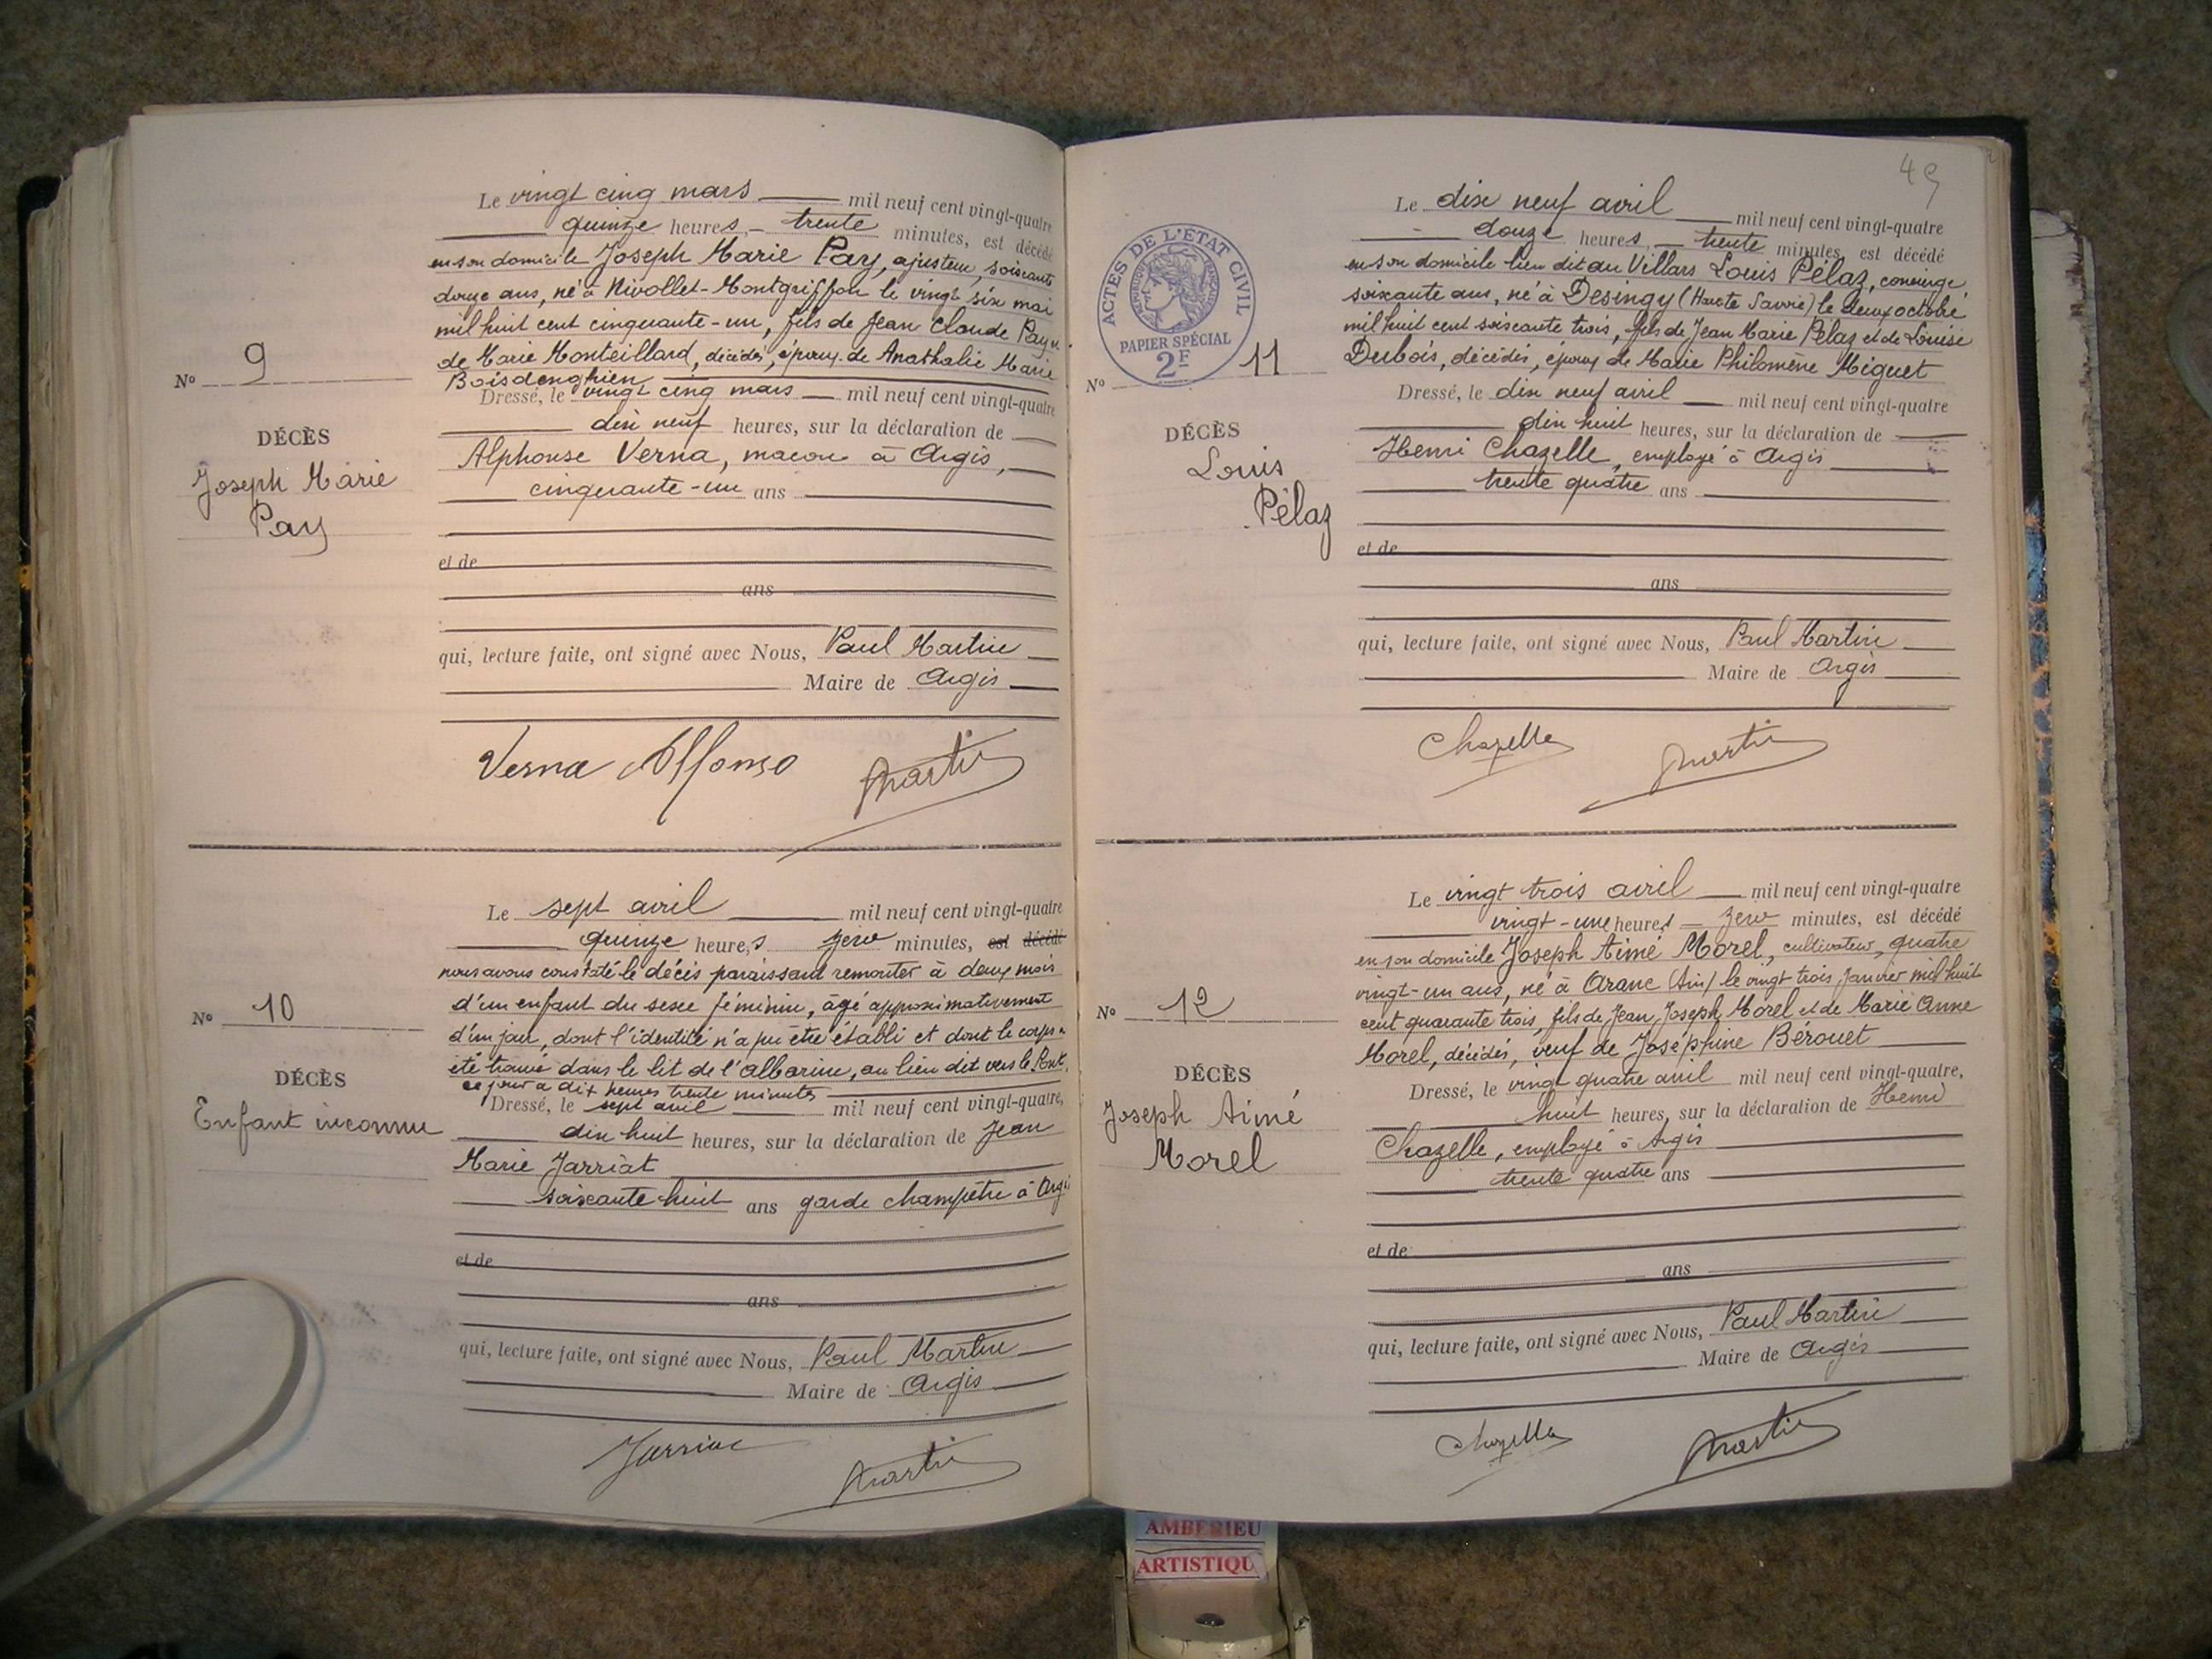 Le vingt cinq mars mil neuf cent vingt-quatre
quinze heures, trente minutes, est décédé
en son domicile Joseph Marie Pay, ajusteur, soixante
douze ans, né à Nivollet-Montgriffon le vingt six mai
mil huit cent cinquante-un, fils de Jean Claude Pay
de Marie Monteillard, décédés, époux de Anathalie Marie
Boisdenghien
No 9
DÉCÈS
Joseph Marie
Pay
Dressé, le vingt cinq mars mil neuf cent vingt-quatre
dix neuf heures, sur la déclaration de
Alphonse Verna, maçon à Argis,
cinquante-un ans
et de
ans
qui, lecture faite, ont signé avec Nous, Paul Martin
Maire de Argis
Verna Alfonso Martin
Le sept avril mil neuf cent vingt-quatre
quinze heures zéro minutes, est décédé
nous avons constaté le décès paraissant remonter à deux mois
d'un enfant du sexe féminin, âgé approximativement
d'un jour, dont l'identité n'a pu être établi et dont le corps a
été trouvé dans le lit de l'Albarine, au lieu dit vers le Pont,
ce jour à dix heures trente minutes
No 10
DÉCÈS
Enfant inconnu
Dressé, le sept avril mil neuf cent vingt-quatre,
dix huit heures, sur la déclaration de Jean
Marie Jarriat
soixante huit ans garde champêtre à Argis
et de
ans
qui, lecture faite, ont signé avec Nous, Paul Martin
Maire de Argis
Jarriat Martin
49
Le dix neuf avril mil neuf cent vingt-quatre
douze heures, trente minutes, est décédé
en son domicile lieu dit au Villars Louis Pélaz, concierge,
soixante ans, né à Desingy (Haute Savoie) le deux octobre
mil huit cent soixante trois, fils de Jean Marie Pélaz et de Louise
Dubois, décédés, époux de Marie Philomène Miguet
ACTES DE L'ÉTAT CIVIL
RÉPUBLIQUE FRANÇAISE
PAPIER SPÉCIAL
2F
No 11
DÉCÈS
Louis
Pélaz
Dressé, le dix neuf avril mil neuf cent vingt-quatre
dix huit heures, sur la déclaration de
Henri Chazelle, employé à Argis
trente quatre ans
et de
ans
qui, lecture faite, ont signé avec Nous, Paul Martin
Maire de Argis
Chazelle Martin
Le vingt trois avril mil neuf cent vingt-quatre
vingt-une heures zéro minutes, est décédé
en son domicile Joseph Aimé Morel, cultivateur, quatre
vingt-un ans, né à Aranc (Ain) le vingt trois Janvier mil huit
cent quarante trois, fils de Jean Joseph Morel et de Marie Anne
Morel, décédés, veuf de Joséphine Bérouet
No 12
DÉCÈS
Joseph Aimé
Morel
Dressé, le vingt quatre avril mil neuf cent vingt-quatre,
huit heures, sur la déclaration de Henri
Chazelle, employé à Argis
trente quatre ans
et de
ans
qui, lecture faite, ont signé avec Nous, Paul Martin
Maire de Argis
Chazelle Martin
AMBERIEU
ARTISTIQU